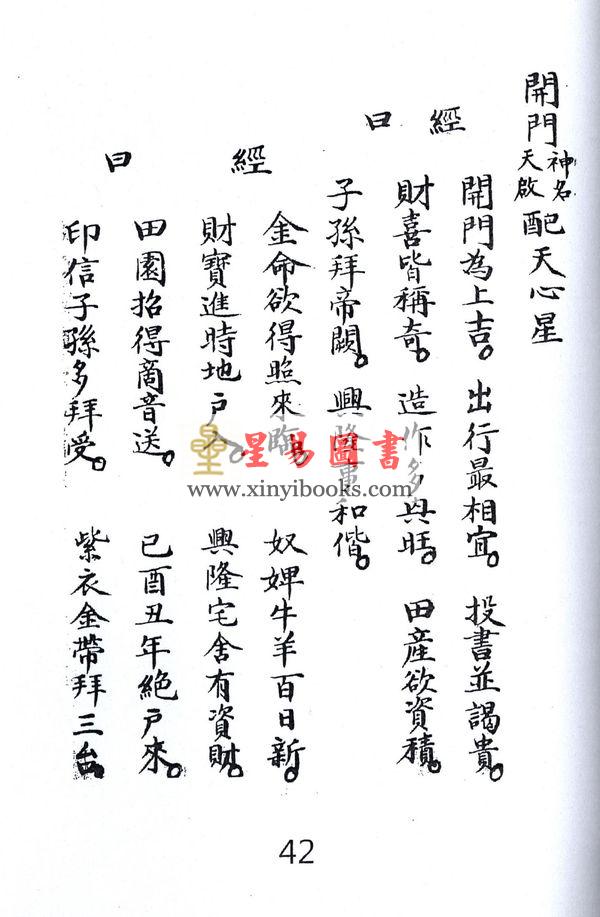 開門神名天啟配天心星
經曰
開門為上吉。出行最相宜。投書並謁貴。
財喜皆稱奇。造作多興旺。田產欲資積。
子孫拜帝闕。興隆和偕。
經曰
金命欲得照來臨。奴婢牛羊百日新。
財寶進時地戶入。興隆宅舍有資財。
田園招得商音送。巳酉丑年絕戶來。
印信子孫多拜受。紫衣金帶拜三台
星易圖書
www.xinyibooks.com
42